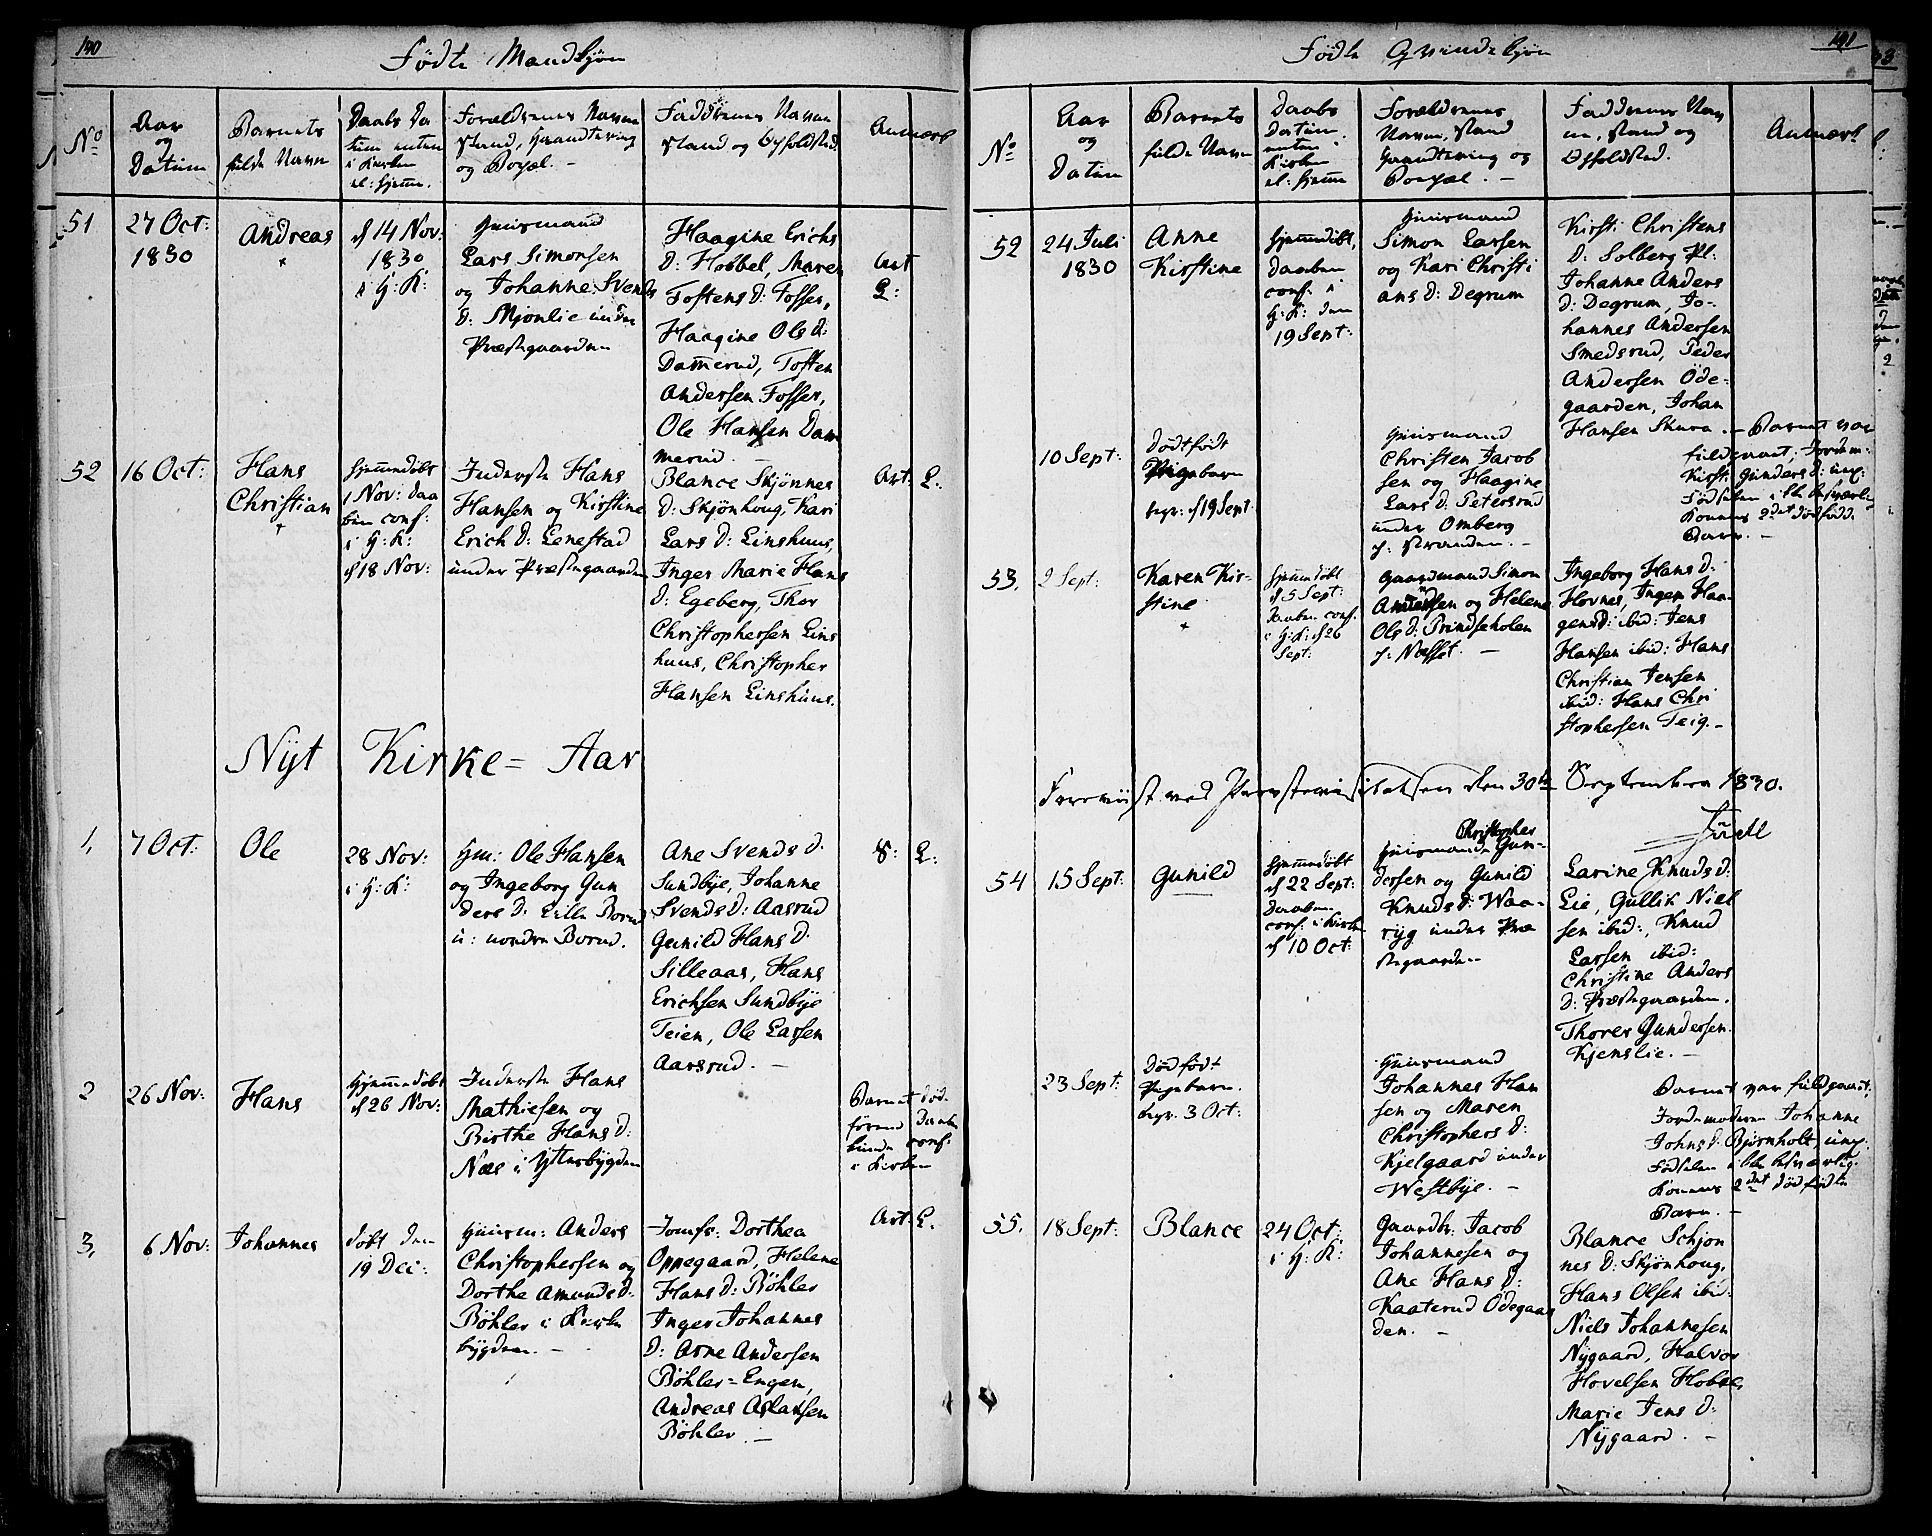 190
Fødte Mandkjøn
No
Aar
og
Datum
Barnets
fulde Navn
Daabs Da
tum enten
i Kirken
el: hjem.
Forældrenes Navn
Stand, Haandtering
og Bopæl. -
Faddernes Navn
Stand og Opholdsted
Anmærk
51
27 Oct:
1830
Andreas
+
d 14 Nov:
1830
i H: K:
Huusmand
Lars Simonsen
og Johanne Svends
D: Mjonlie under
Præstegaarden
Haagine Erichs
D: Hobbel, Maren
Tostens D: Fosser,
Haagine Ols D:
Dam̄erud, Tosten
Andersen Fosser,
Ole Hansen Dam
merud. -
Art
L:
52
16 Oct:
Hans
Christian
+
hjem̄edøbt
1 Nov: daa
ben conf:
i H: K:
d 18 Nov:
Inderste Hans
Hansen og Kirstine
Erich D: Lenestad
under Præstegaarden
Blance Skjønnes
D: Skjønhoug, Kari
Lars D: Linshuus,
Inger Marie Hans
D: Egeberg, Thor
Christophersen Lins
huus, Christopher
Hansen Linshuus.
Art. L:
Nyt Kirke= Aar
1,
7 Oct:
Ole
28 Nov:
i H: K:
Hm: Ole Hansen
og Ingeborg Gun
ders D: Lille Borud
u: nordre Borud.
Ane Svends D:
Sundbye, Johanne
Svends D: Aasrud
Gunild Hans D:
Silleaas, Hans
Erichsen Sundbye
Teien, Ole Larsen
Aarsrud. -
S: L:
2
26 Nov:
Hans
hjem̄edøbt
d 26 Nov:
Inderste Hans
Mathiesen og
Birthe Hans D:
Næs i Ytterbygden
Barnet død
førend Daaben
kunde conf:
i Kirken
3,
6 Nov:
Johannes
døbt den
19 Dec:
Huusm: Anders
Christophersen og
Dorthe Amunds D:
Bøhler i Kirke
bygden. -
Jomfr: Dorthea
Oppegaard, Helene
Hans D: Bøhler
Inger Johannes
D: Arne Andersen
Bøhler-Engen,
Andreas Aslaksen
Bøhler. -
Art. L.
191
Fødte Qvindekjøn
No
Aar
og
Datum
Barnets
fulde Navn
Daabs
Datum
enten i
Kirken
el: hjem̄
Forældrenes
Navn, Stand
Haandtering og
Bopæl. -
Faddernes Nav
ne, Stand og
Opholdsted.
Anmærk
52
24 Juli
1830
Anne
Kirstine
hjem̄edøbt,
Daaben
conf: i
H: K: den
19 Sept:
Huusmand
Simon Larsen
og Kari Christi
ans D: Degrum
Kirsti Christens
D: Solberg Pl:
Johanne Anders
D: Degrum, Jo-
hannes Andersen
Smedsrud, Peder
Andersen Öde-
gaarden, Johan
Hansen Skura. -
10 Sept:
dødfødt
Pigebarn
begr: d 19 Sept
Huusmand
Christen Jacob
sen og Haagine
Lars D: Petersrud
under Omberg
i Stranden. -
Barnet var
fuldbaaret, Jordm:
Kirsti Gunders D:
Fødselen ikke besværlig
Konens 2det dødfødte
Barn. -
53.
2 Sept:
Karen Kir-
stine
+
hjem̄edøbt
d 5 Sept:
Daaben conf.
i H: K: d 26
Sept:
Gaardmand Simon
Andersen og Helene
Ols D: Prindseholen
i: Næsset. -
Ingeborg Hans D:
Hovnes, Inger Haa-
gens D: ibid: Jens
Hansen ibid: Hans
Christian Jensen
ibid: Hans Chri
stophersen Teig. -
Foreviist ved Provstevisitatsen den 30te September 1830.
54
15 Sept:
Gunild
hjem̄edøbt
d 22 Sept:
Daaben
conf: i Kirken
d 10 Oct:
Christopher
Huusmand Gun-
dersen og Gunild
Knuds D: Waa-
ryg under Præ
stegaarden
Larine Knuds D:
Lie, Gullik Niel
sen ibid:, Knud
Larsen ibid:
Christine Anders
D: Præstegaarden.
Thorer Gundersen
Kjenslie. -
23 Sept:
Dødfødt
Pigebarn.
begr. 3 Oct:
Huusmand
Johannes Han
sen og Maren
Christophers D:
Kjelgaard under
Westbye. -
Barnet var fuldbaaret;
Jordmoderen Johanne
Johns D: Bjørnholt
Fødselen ikke besværlig.
Konens 2det dødfødte
Barn. -
55.
18 Sept:
Blance
24 Oct:
i H: K:
Gaardbr: Jacob
Johannesen og
Ane Hans D:
Kaaterud Ödegaar
den. -
Blance Schjøn
nes D: Skjønhoug,
Hans Olsen ibid:
Niels Johannesen
Nygaard, Halvor
Hovelsen Hobbel
Marie Jens D:
Nygaard. -